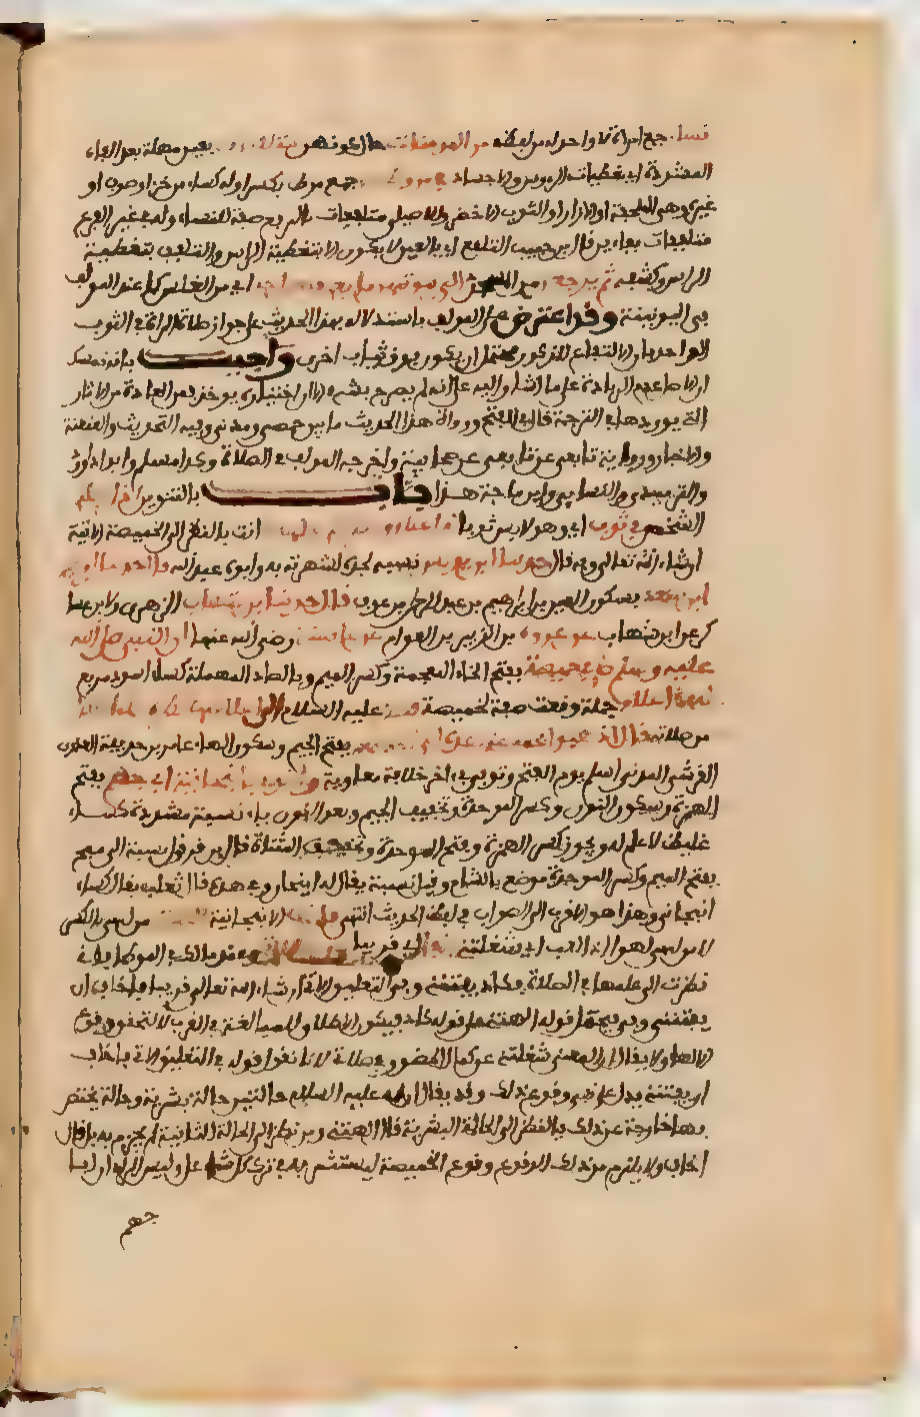 نساء جمع امراة لا واحد له من لفظه من المومنات حال كونهن متلفعات بعين مهملة بعد الفاء
المشددة اي مغطيات الرءوس والاجساد في مروطهن جمع مرط بكسر اوله كساء من خز او صوف او
غيره وهي الملحفة او الازار او الثوب الاخضر وللاصيلي متلفعات بالرفع صفة للنساء وله في غير الفرع
متلففات بفاءين قال ابن حبيب التلفع اي بالعين لا يكون الا بتغطية الراس والتلفف بتغطية
الراس وكشفه ثم يرجعن من المسجد الى بيوتهن ما يعرفهن احد اي من الغلس كما عند المولف
في المواقيت وقد اعترض على المولف باستدلاله بهذا الحديث على جواز صلاة المراة في الثوب
الواحد بان الالتفاع المذكور محتمل ان يكون فوق ثياب اخرى واجيب بانه تمسك
ان الاصل عدم الزيادة على ما اشار اليه على انه لم يصرح بشيء الا ان اختياره يوخذ من العادة من الاثار
التي يوردها في الترجمة قاله في الفتح ورواة هذا الحديث ما بين حمصي ومدني وفيه التحديث والعنعنة
والاخبار ورواية تابعي عن تابعي عن صحابية واخرجه المولف في الصلاة وكذا مسلم وابو داود
والترمذي والنساءي وابن ماجة هذا باب بالتنوين اذا صلى
الشخص في ثوب اي وهو لابس ثوبا له اعلام ونظر الى علمها انث بالنظر الى الخميصة الاتية
ان شاء الله تعالى وبه قال حدثنا احمد بن يونس نسبه لجده لشهرته به وابوه عبد الله قال حدثنا ابراهيم
ابن سعد بسكون العين بن ابراهيم بن عبد الرحمن بن عوف قال حدثنا ابن شهاب الزهري ولابن عسا
كر عن ابن شهاب عن عروة بن الزبير بن العوام عن عائشة رضي الله عنها ان النبي صلى الله
عليه وسلم صلى في خميصة بفتح الخاء المعجمة وكسر الميم وبالصاد المهملة كساء اسود مربع
لها اعلام جملة وقعت صفة لخميصة فنظر عليه الصلاة الى اعلامها نظرة فلما انصرف
من صلاته قال اذهبوا بخميصتي هذه الى ابي جهم بفتح الجيم وسكون الهاء عامر بن حذيفة العدوي
القرشي المدني اسلم يوم الفتح وتوفي في اخر خلافة معاوية واتوني بانبجانية ابي جهم بفتح
الهمزة وسكون النون وكسر الموحدة وتخفيف الجيم وبعد النون ياء نسبة مشددة كساء
غليظ لا علم له ويجوز كسر الهمزة وفتح الموحدة وتخفيف المثناة قال ابن قرقول نسبة الى منبج
بفتح الميم وكسر الموحدة موضع بالشام وقيل نسبة يقال له انبجان وعن ثعلب يقال كساء
انبجاني وهذا هو الاقرب الى الصواب في لفظ الحديث انتهى فانها الانبجانية الهتني من لهي بالكسر
لا من لهى لهوا اذا لعب اي شغلتني انفا اي قريبا عن صلاتي وعند مالك في الموطا فاني
نظرت الى علمها في الصلاة فكاد يفتنني وفي التعليق الاتي ان شاء الله تعالى قريبا فاخاف ان
يفتنني فيحمل قوله الهتني على قوله كاد فيكون الاطلاق للمبالغة في القرب لا لتحقق وقوع
الالهاء ولا يقال ان المعنى شغلتني عن كمال الحضور في صلاتي لانا نقول قوله في التعليق الاتي فاخاف
ان يفتنني يدل على نفي وقوع ذلك وقد يقال ان له عليه السلام حالتين حالة بشرية وحالة يختص
بها خارجة عن ذلك فبالنظر الى الحالة البشرية قال الهتني وبالنظر الى الحالة الثانية لم يجزم به بل قال
اخاف ولا يلزم من ذلك الوقوع ونزع الخميصة ليستتر به في ترك كل شاغل وليس المراد ان ابا
جهم